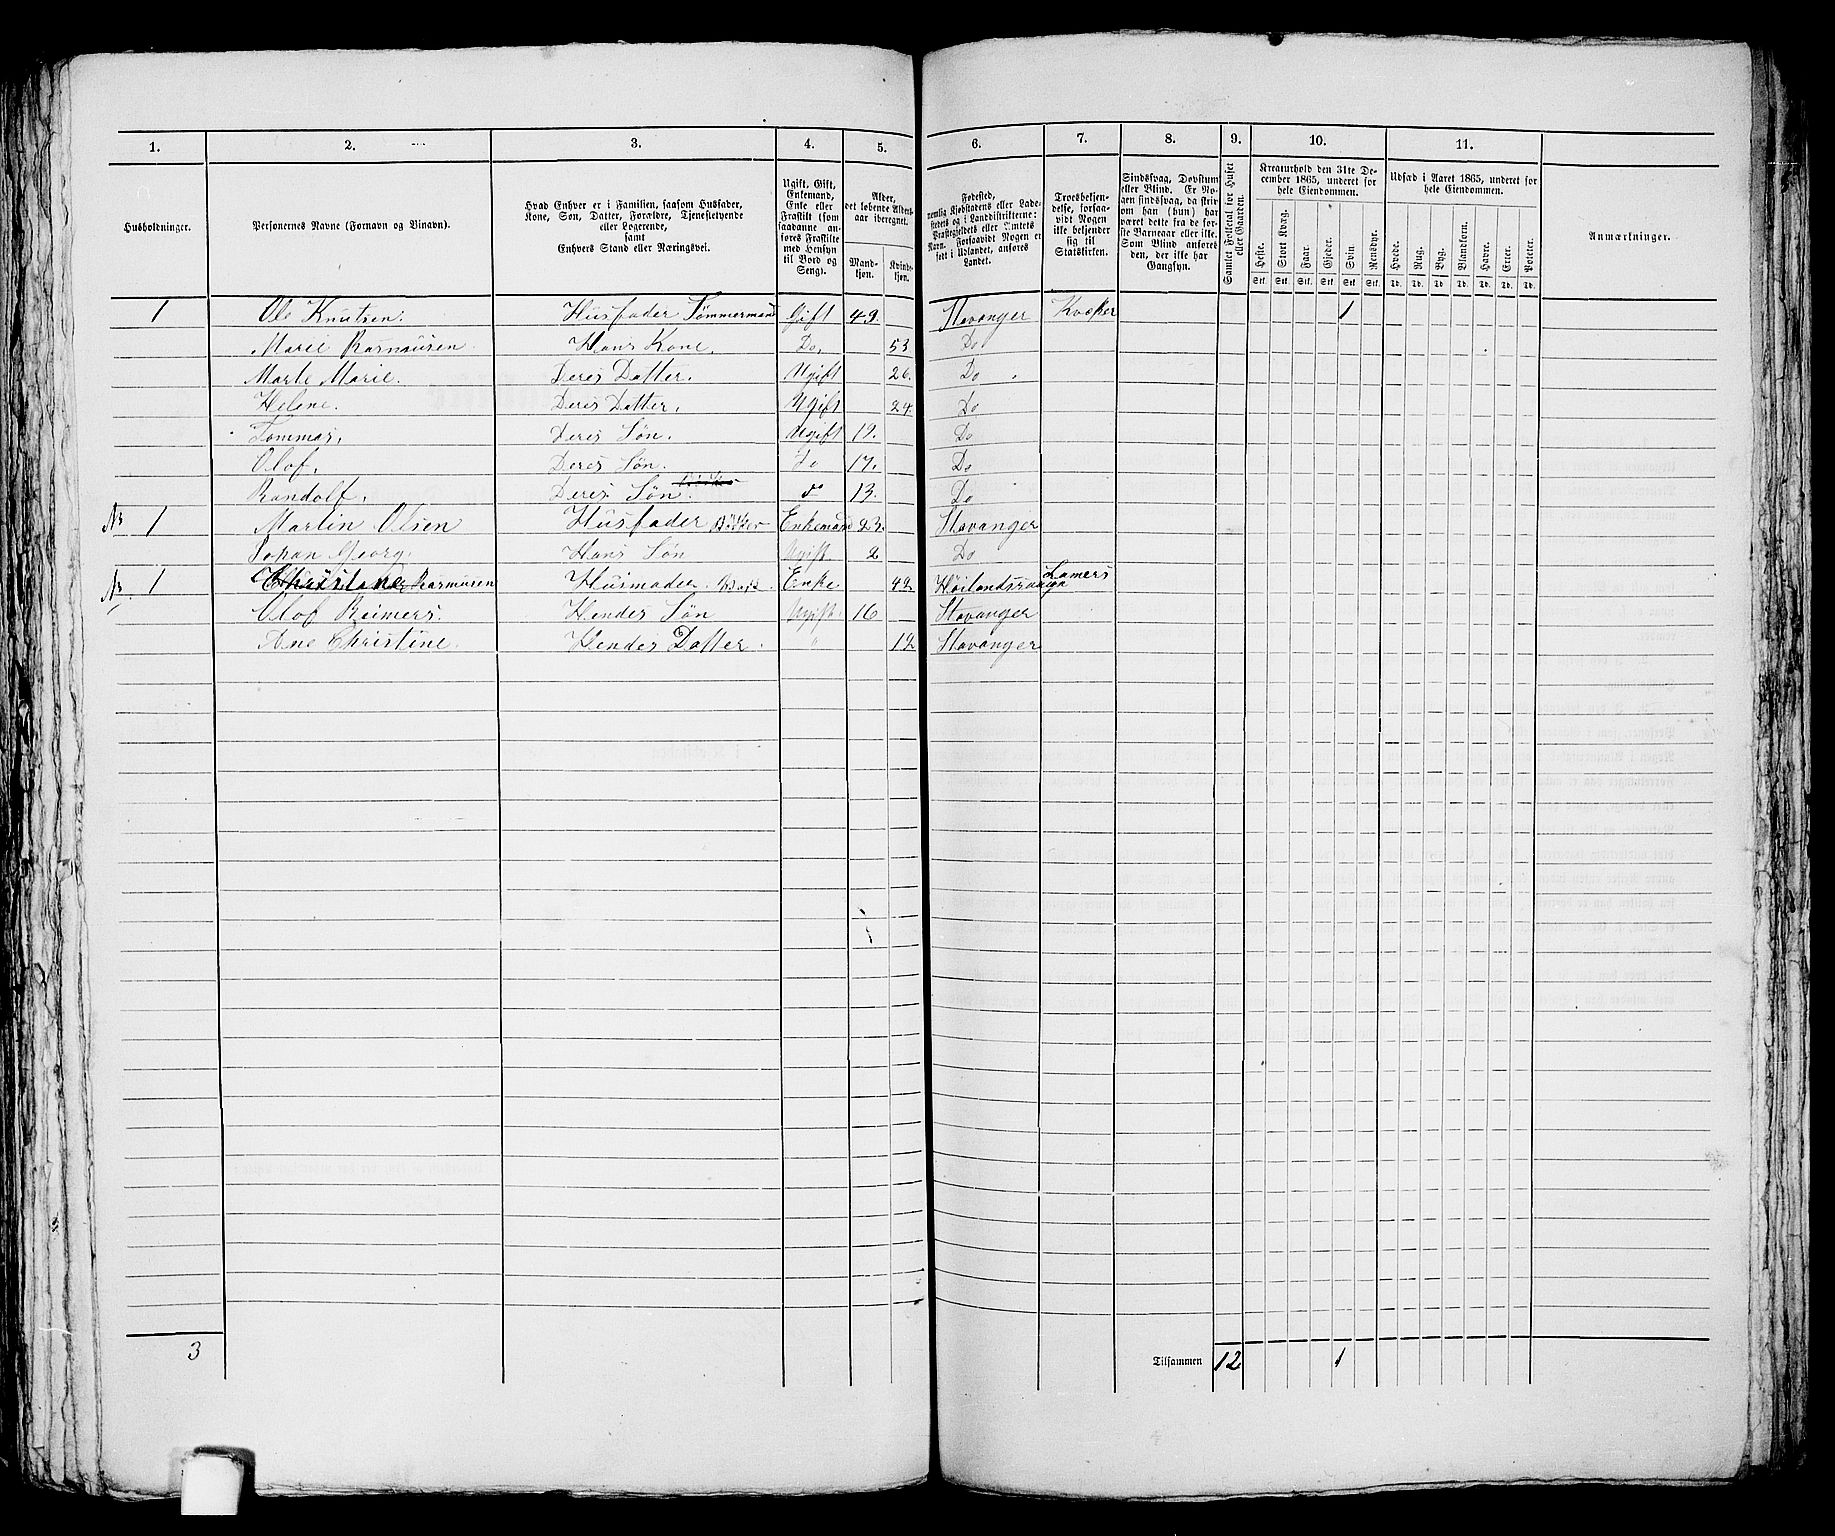 1. 2. 3. 4. 5. 6. 7. 8. 9. 10. 11.
Husholdninger.
Personernes Navne (Fornavn og Binavn).
Hvad Enhver er i Familien, saasom Husfader,
Kone, Søn, Datter, Forældre, Tjenestetyende
eller Logerende,
samt
Enhvers Stand eller Næringsvei.
Ugift, Gift,
Enkemand,
Enke eller
Fraskilt (som
saadanne an-
føres Fraskilte
med Hensyn
til Bord og
Seng).
Alder,
det løbende Alders-
aar iberegnet.
Mand-
kjøn.
Kvinde-
kjøn.
Fødested,
nemlig Kjøbstadens eller Lade-
stedets og i Landdistrikterne:
Præstegjeldets eller Amtets
Navn. Forsaavidt Nogen er
født i Udlandet, anføres
Landet.
Troesbekjen-
delse, forsaa-
vidt Nogen
ikke bekjender
sig til
Statskirken.
Sindssvag, Døvstum
eller Blind. Er No-
gen sindssvag, da skriv
om han (hun) har
været dette fra de før-
ste Barneaar eller ikke.
Som Blind anføres
den, der ikke har
Gangsyn.
Samlet Folketal for Huset
eller Gaarden.
Kreaturhold den 31te De-
cember 1865, underet for
hele Eiendommen.
Heste. Stort Kvæg. Faar. Gjeder. Svin. Rensdyr.
Stk. Stk. Stk. Stk. Stk. Stk.
Udsæd i Aaret 1865, underet for
hele Eiendommen.
Hvede. Rug. Byg. Blandkorn. Havre. Erter. Poteter.
Td. Td. Td. Td. Td. Td. Td.
Anmærkninger.
1 Ole Knutsen. Husfader Tømmermand Gift 49. Stavanger Kvæker 1
Marie Rasmusen Hans Kone. Do. 53 Do
Marte Marie. Deres Datter. Ugift 26. Do
Helene. Deres Datter. Ugift 24. Do
Tommas, Deres Søn. Ugift 19. Do
Olof, Deres Søn. Do 17. Do
Randolf, Deres Søn. do 13. Do
Nr 1 Martin Olsen Husfader Bødker Enkemand 23. Stavanger
Johan Georg. Hans Søn Ugift 2 Do
Nr 1 Christane Rasmusen Husmoder. Enke 42 Høilands
Olof Reimers. Hendes Søn Ugift 16 Stavanger
Ane Christine. Hendes Datter. " 12 Stavanger
3 Tilsammen 12 1